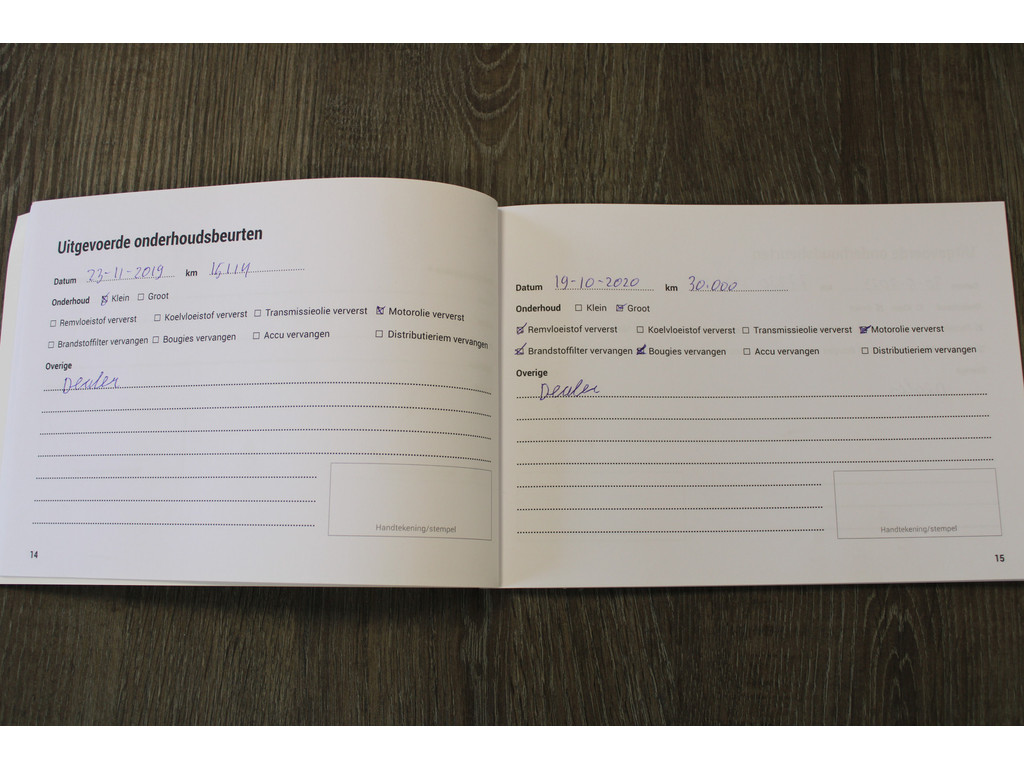 Uitgevoerde onderhoudsbeurten
Datum 23-11-2019 km
Onderhoud ☒ Klein ☐ Groot
☐ Remvloeistof ververst ☐ Koelvloeistof ververst ☐ Transmissieolie ververst ☒ Motorolie ververst
☐ Brandstoffilter vervangen ☐ Bougies vervangen ☐ Accu vervangen ☐ Distributieriem vervangen
Overige
Dealer
Handtekening/stempel
14
Datum 19-10-2020 km 30.000
Onderhoud ☐ Klein ☒ Groot
☒ Remvloeistof ververst ☐ Koelvloeistof ververst ☐ Transmissieolie ververst ☒ Motorolie ververst
☒ Brandstoffilter vervangen ☒ Bougies vervangen ☐ Accu vervangen ☐ Distributieriem vervangen
Overige
Dealer
Handtekening/stempel
15